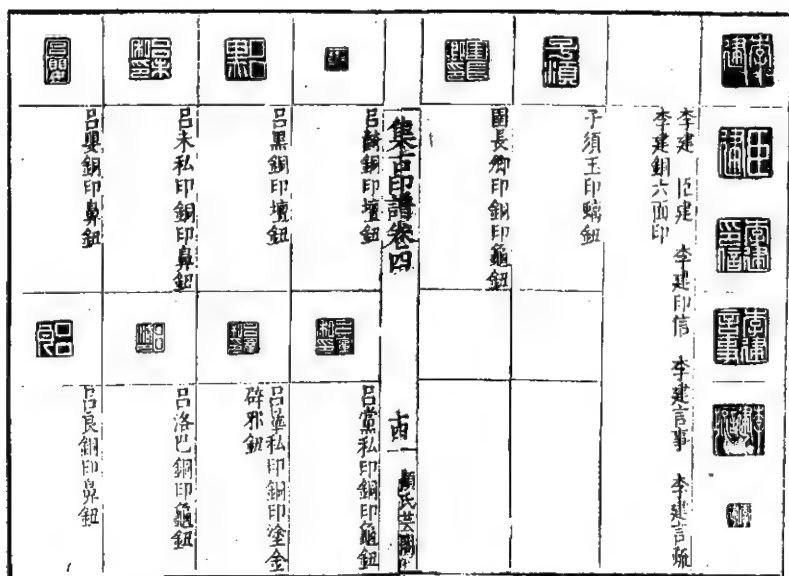 李建　臣建　李建印信　李建言事　李建言疏
李建銅六面印
子須玉印螭鈕
圉長卿印銅印龜鈕
集古印譜卷四
十四
顧氏芸閣
銅印壇鈕
呂黨私印銅印龜鈕
呂黑銅印壇鈕
呂華私印銅印塗金
辟邪鈕
呂未私印銅印鼻鈕
呂洛巴銅印龜鈕
呂嬰銅印鼻鈕
呂良銅印鼻鈕